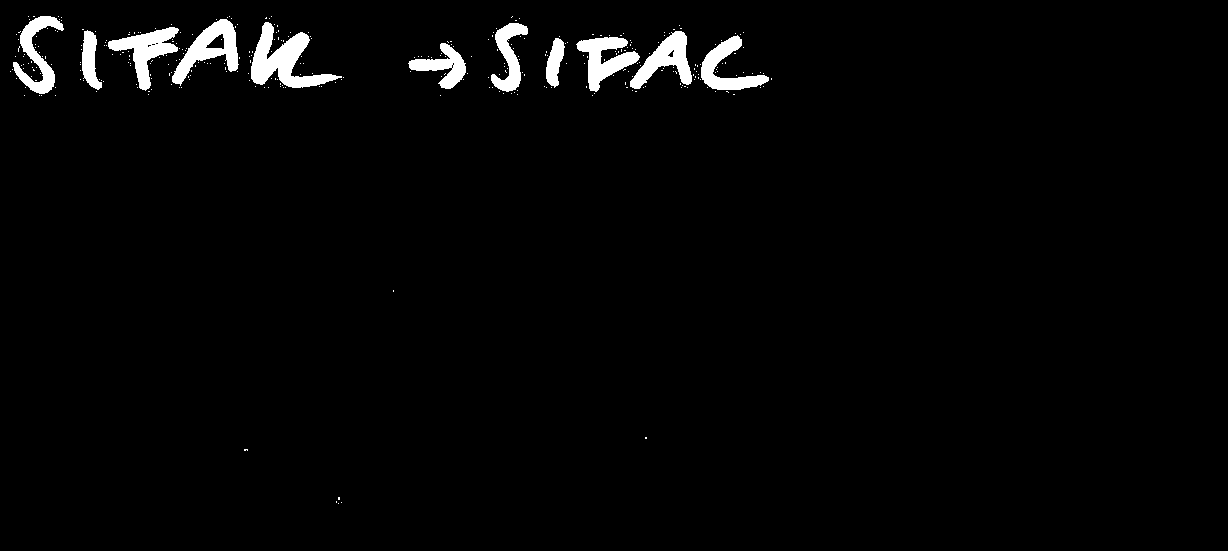 SIFAK → SIFAC